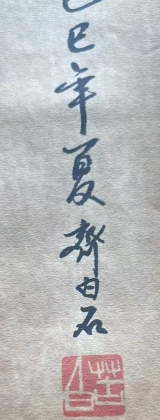 己巳年夏齊白石